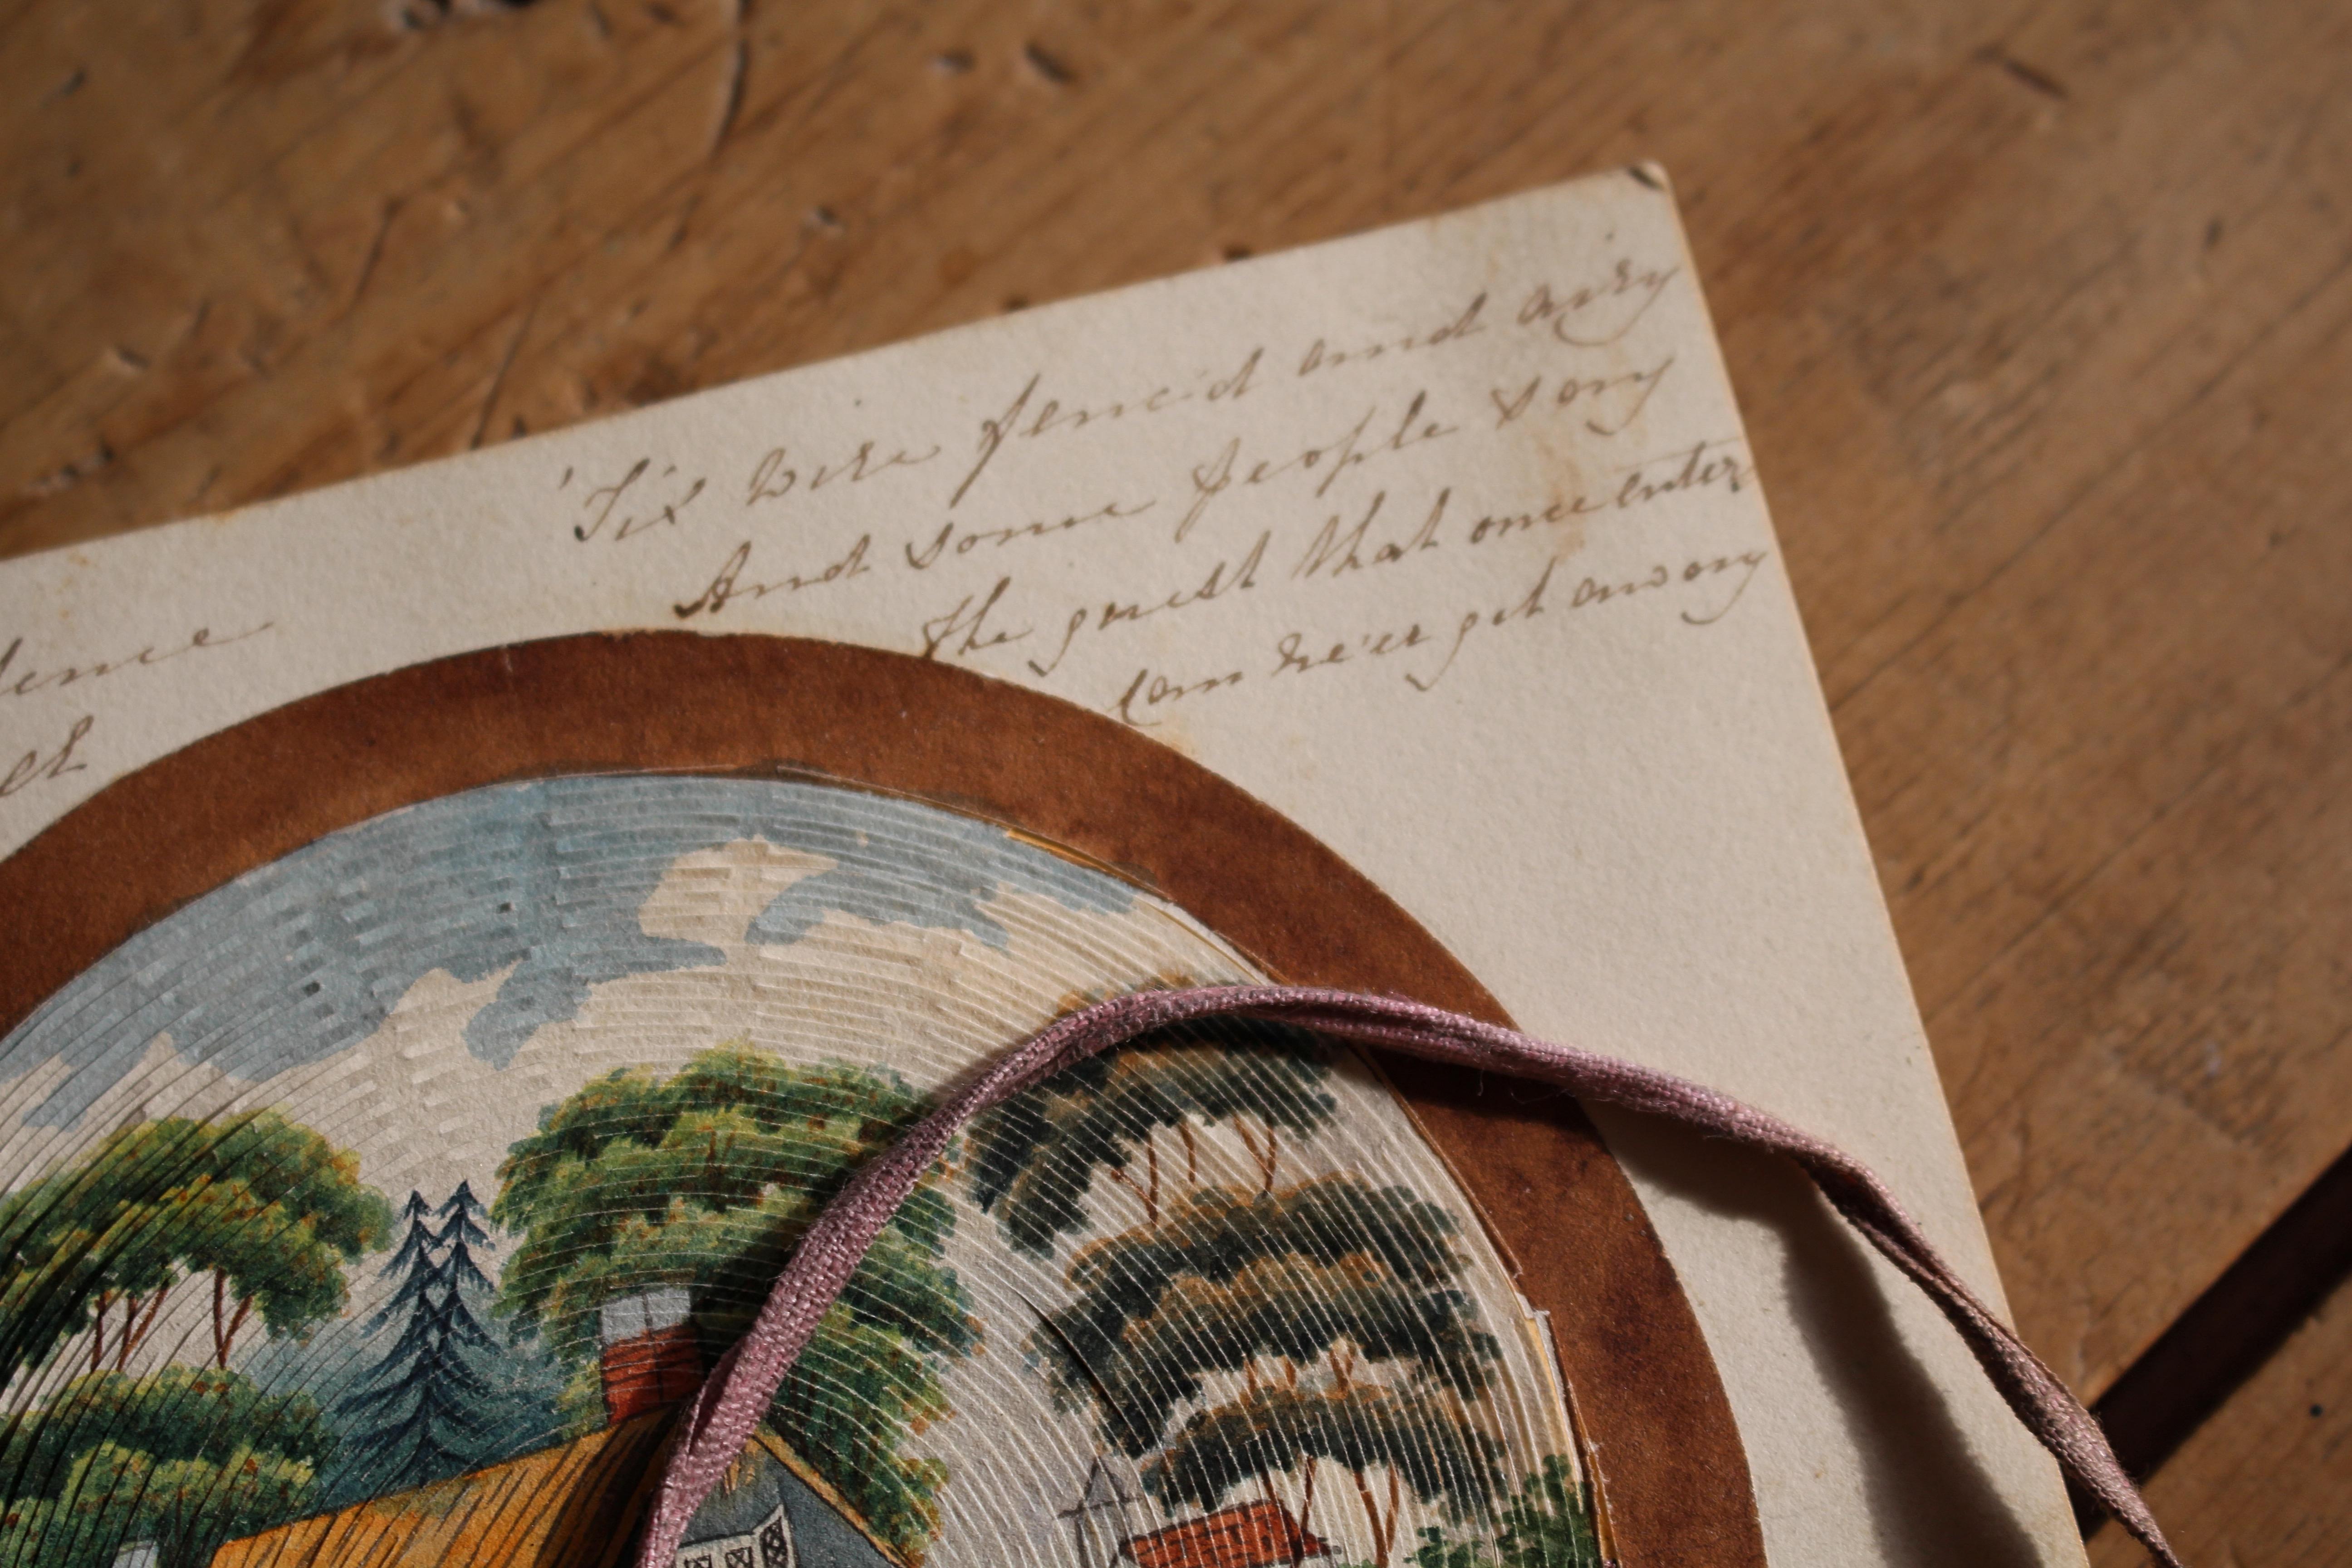 'Tis wire fencid and airy
And some people say
The guest that once enter
Can ne'er get away